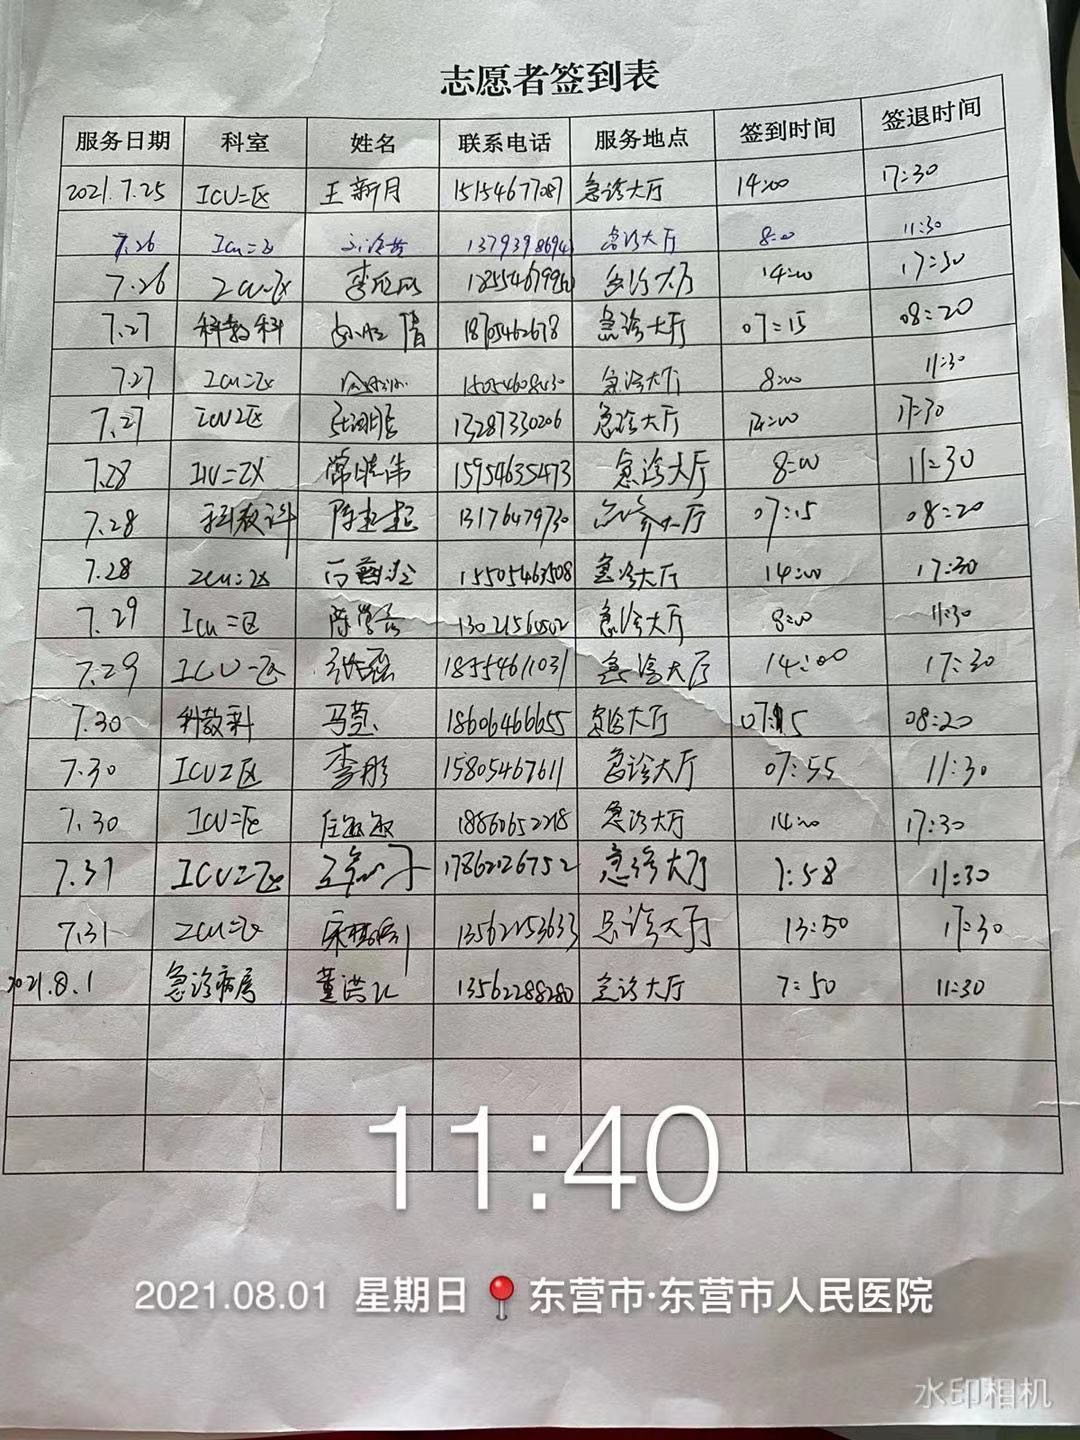 志愿者签到表
服务日期 科室 姓名 联系电话 服务地点 签到时间 签退时间
2021.7.25 ICU二区 王新月 15154677087 急诊大厅 14:00 17:30
7.26 Icu二区 急诊大厅 8:00 11:30
7.26 ICU二区 急诊大厅 14:00 17:30
7.27 科教科 18705462678 急诊大厅 07:15 08:20
7.27 Icu二区 急诊大厅 8:00 11:30
7.27 ICU2区 13287330206 急诊大厅 14:00 17:30
7.28 ICU二区 常晓伟 15954635473 急诊大厅 8:00 11:30
7.28 科教科 13176479730 急诊大厅 07:15 08:20
7.28 ICU二区 15505463508 急诊大厅 14:00 17:30
7.29 Icu二区 急诊大厅 8:00 11:30
7.29 ICU二区 张磊 18554611031 急诊大厅 14:00 17:30
7.30 科教科 18606466655 急诊大厅 07:15 08:20
7.30 ICU2区 李彤 15805467611 急诊大厅 07:55 11:30
7.30 ICU二区 任敏敏 18860652218 急诊大厅 14:00 17:30
7.31 ICU二区 17862126752 急诊大厅 7:58 11:30
7.31 ICU二区 13562153633 急诊大厅 13:50 17:30
2021.8.1 急诊病房 13562288280 急诊大厅 7:50 11:30
11:40
2021.08.01 星期日 东营市·东营市人民医院
水印相机